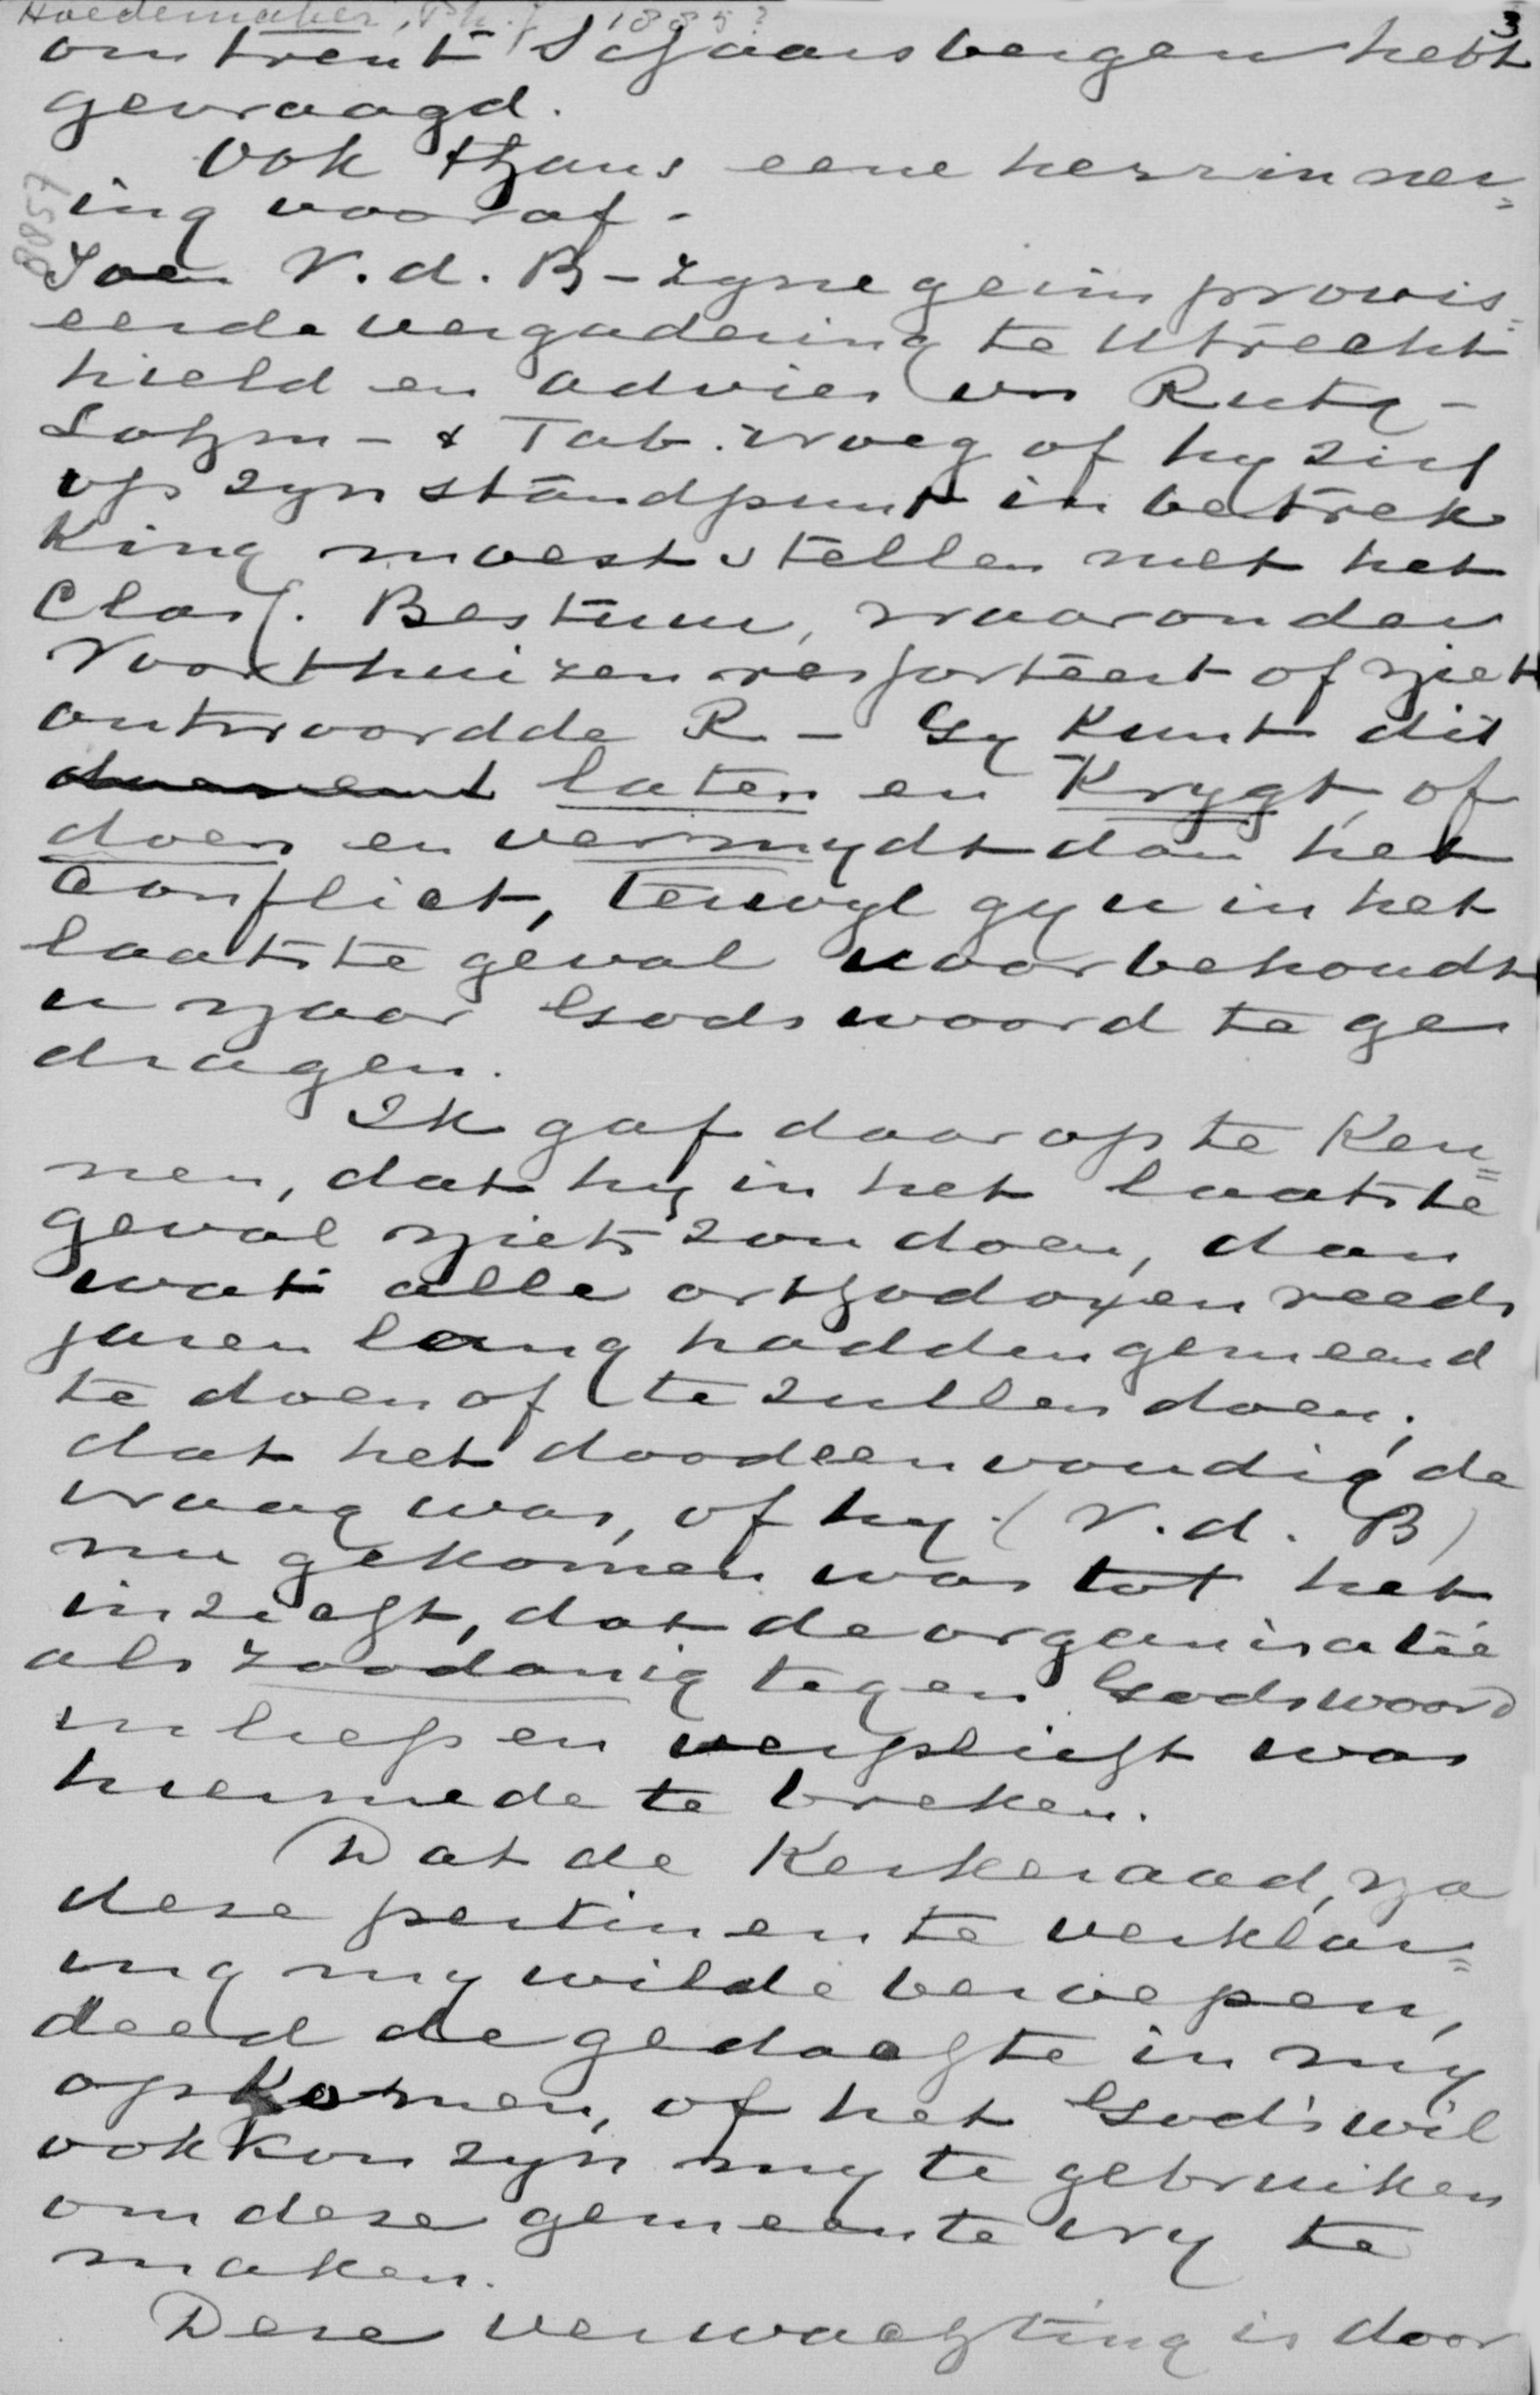 Hoedemaker, Ph. J. 1885?
3
omtrent Schaarsbergen hebt
gevraagd.
Ook thans eene herinner=
ing vooraf.
8857
Toen V.d. B- zyne geimprovis=
eerde vergadering te Utrecht
hield en advies van Rutg-
Lohm- & Tab. vroeg of hy zich
op zyn standpunt in betrek
king moest stellen met het
Class. Bestuur, waaronder
Voorthuizen ressorteert of niet
antwoordde R- Gy kunt dit
laten en krygt of
doen en vermydt dan het
conflict, terwyl gy u in het
laatste geval voorbehoudt
u naar Gods woord te ge
dragen.
Ik gaf daarop te ken=
nen, dat hy in het laatste
geval niets zou doen, dan
wat alle orthodoxen reeds
jaren lang hadden gemeend
te doen of te zullen doen;
dat het doodeenvoudig de
vraag was, of hy (V.d. B)
nu gekomen was tot het
inzicht, dat de organisatie
als zoodanig tegen Gods woord
inliep en verplicht was
hiermede te breken.
Dat de Kerkeraad, na
deze pertinente verklar=
ing my wilde beroepen,
deed de gedachte in my
opkomen, of het Gods wil
ook kon zyn my te gebruiken
om deze gemeente vry te
maken.
Deze verwachting is door